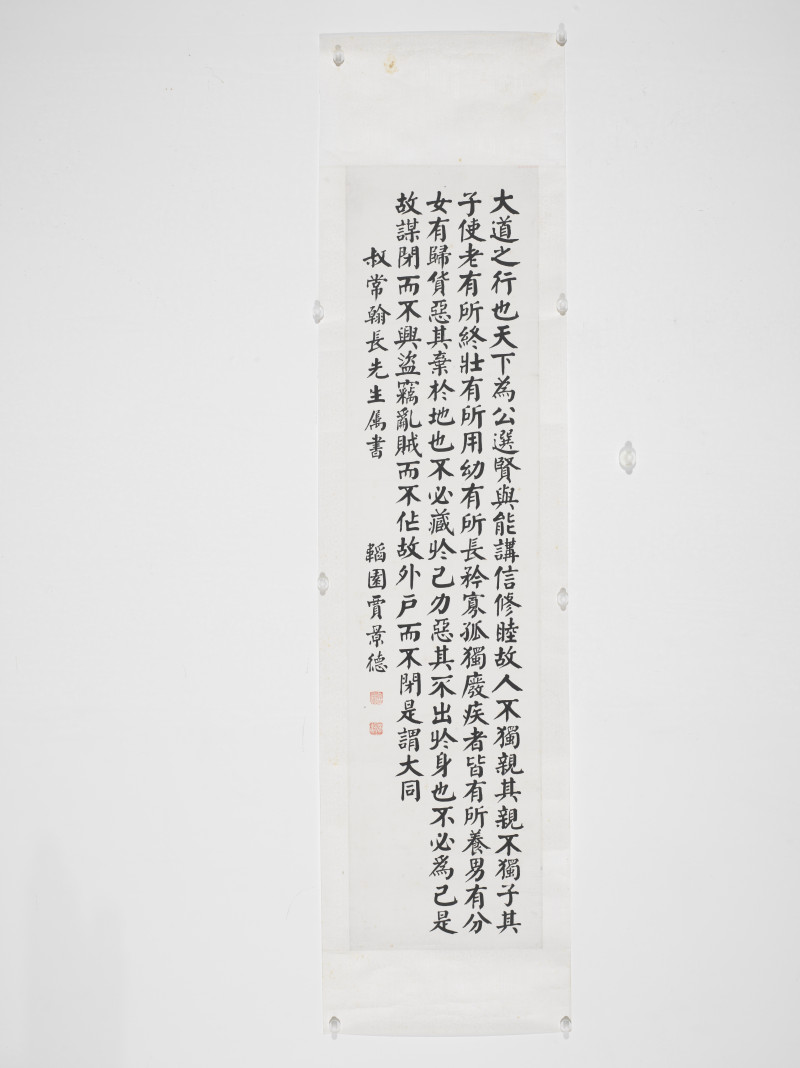 大道之行也天下為公選賢與能講信修睦故人不獨親其親不獨子其
子使老有所終壯有所用幼有所長矜寡孤獨廢疾者皆有所養男有分
女有歸貨惡其棄於地也不必藏於己力惡其不出於身也不必為己是
故謀閉而不興盜竊亂賊而不作故外戶而不閉是謂大同
叔常翰長先生属書
韜園賈景德